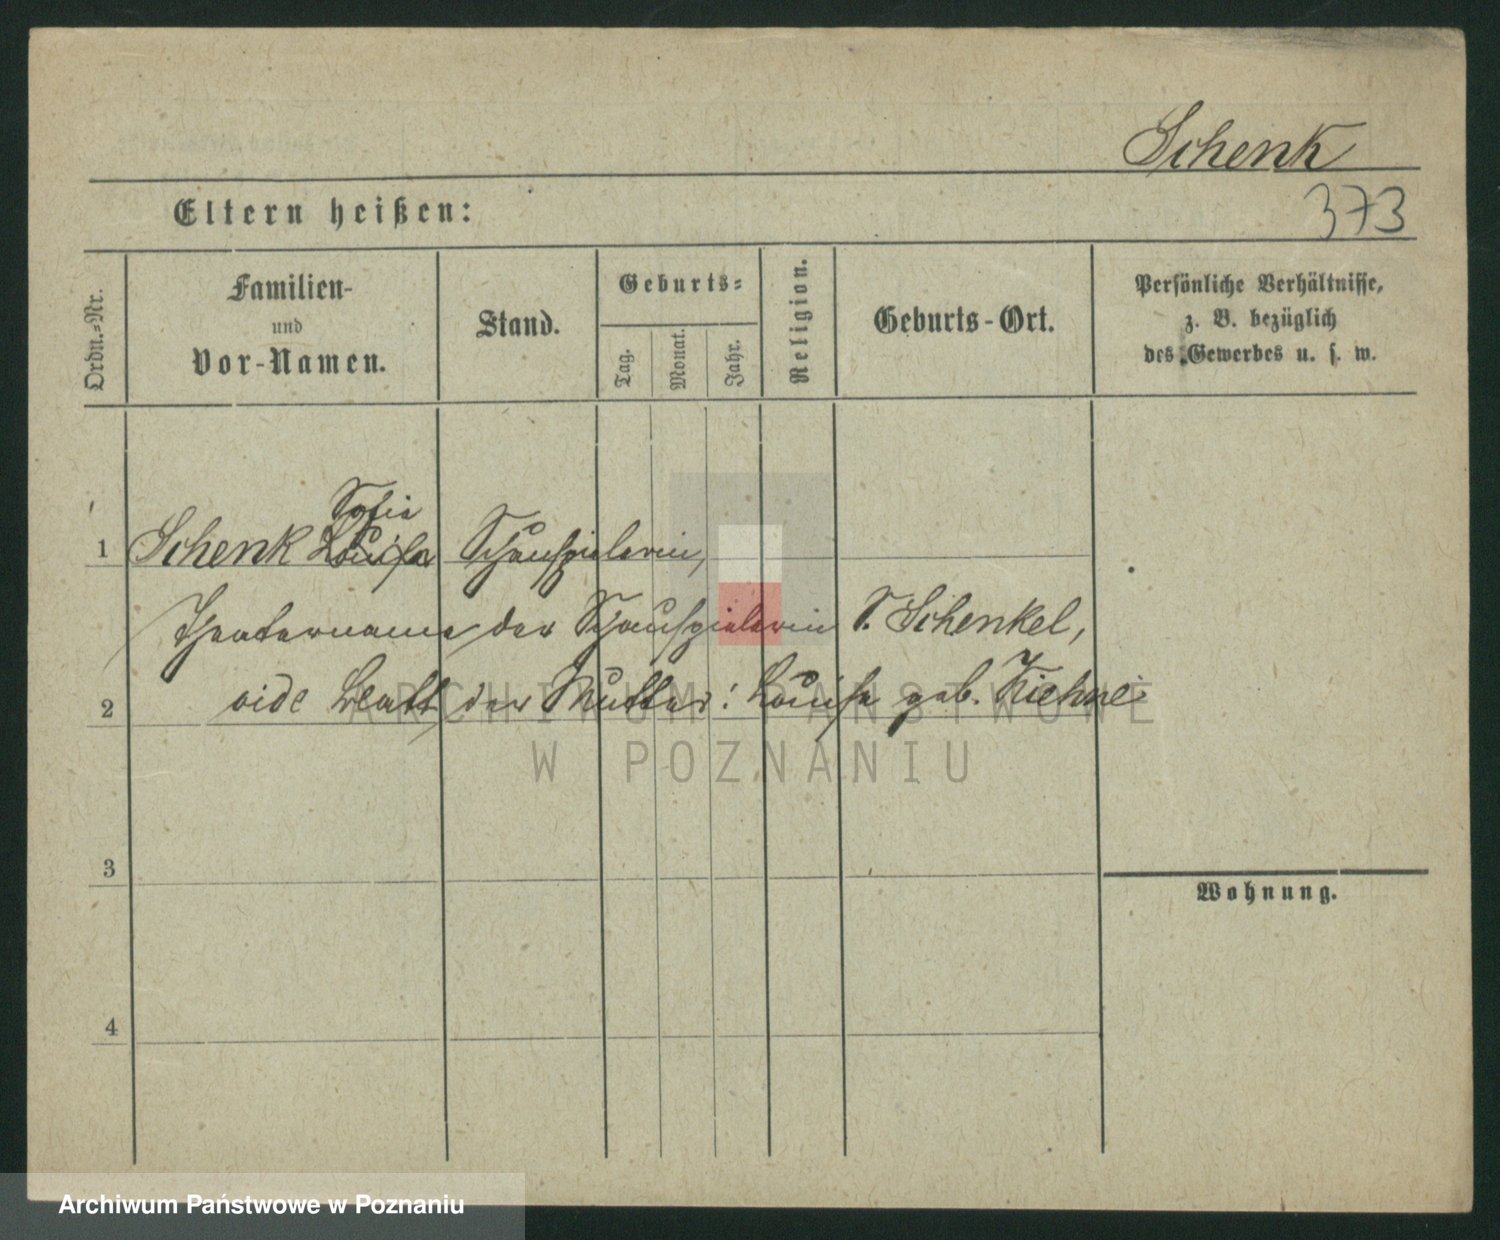 Schenk
Eltern heißen:
373
Ordn.-Nr.
Familien-
und
Vor-Namen.
Stand.
Geburts-
Tag.
Monat.
Jahr.
Religion.
Geburts-Ort.
Persönliche Verhältnisse,
z. B. bezüglich
des Gewerbes u. s. w.
Sofie
1 Schenk Louise Schauspielerin,
Theatername der Schauspielerin S. Schenkel,
2 vide Blatt der Mutter: Louise geb. Kiehne
ARCHIWUM PAŃSTWOWE
W POZNANIU
3
Wohnung.
4
Archiwum Państwowe w Poznaniu